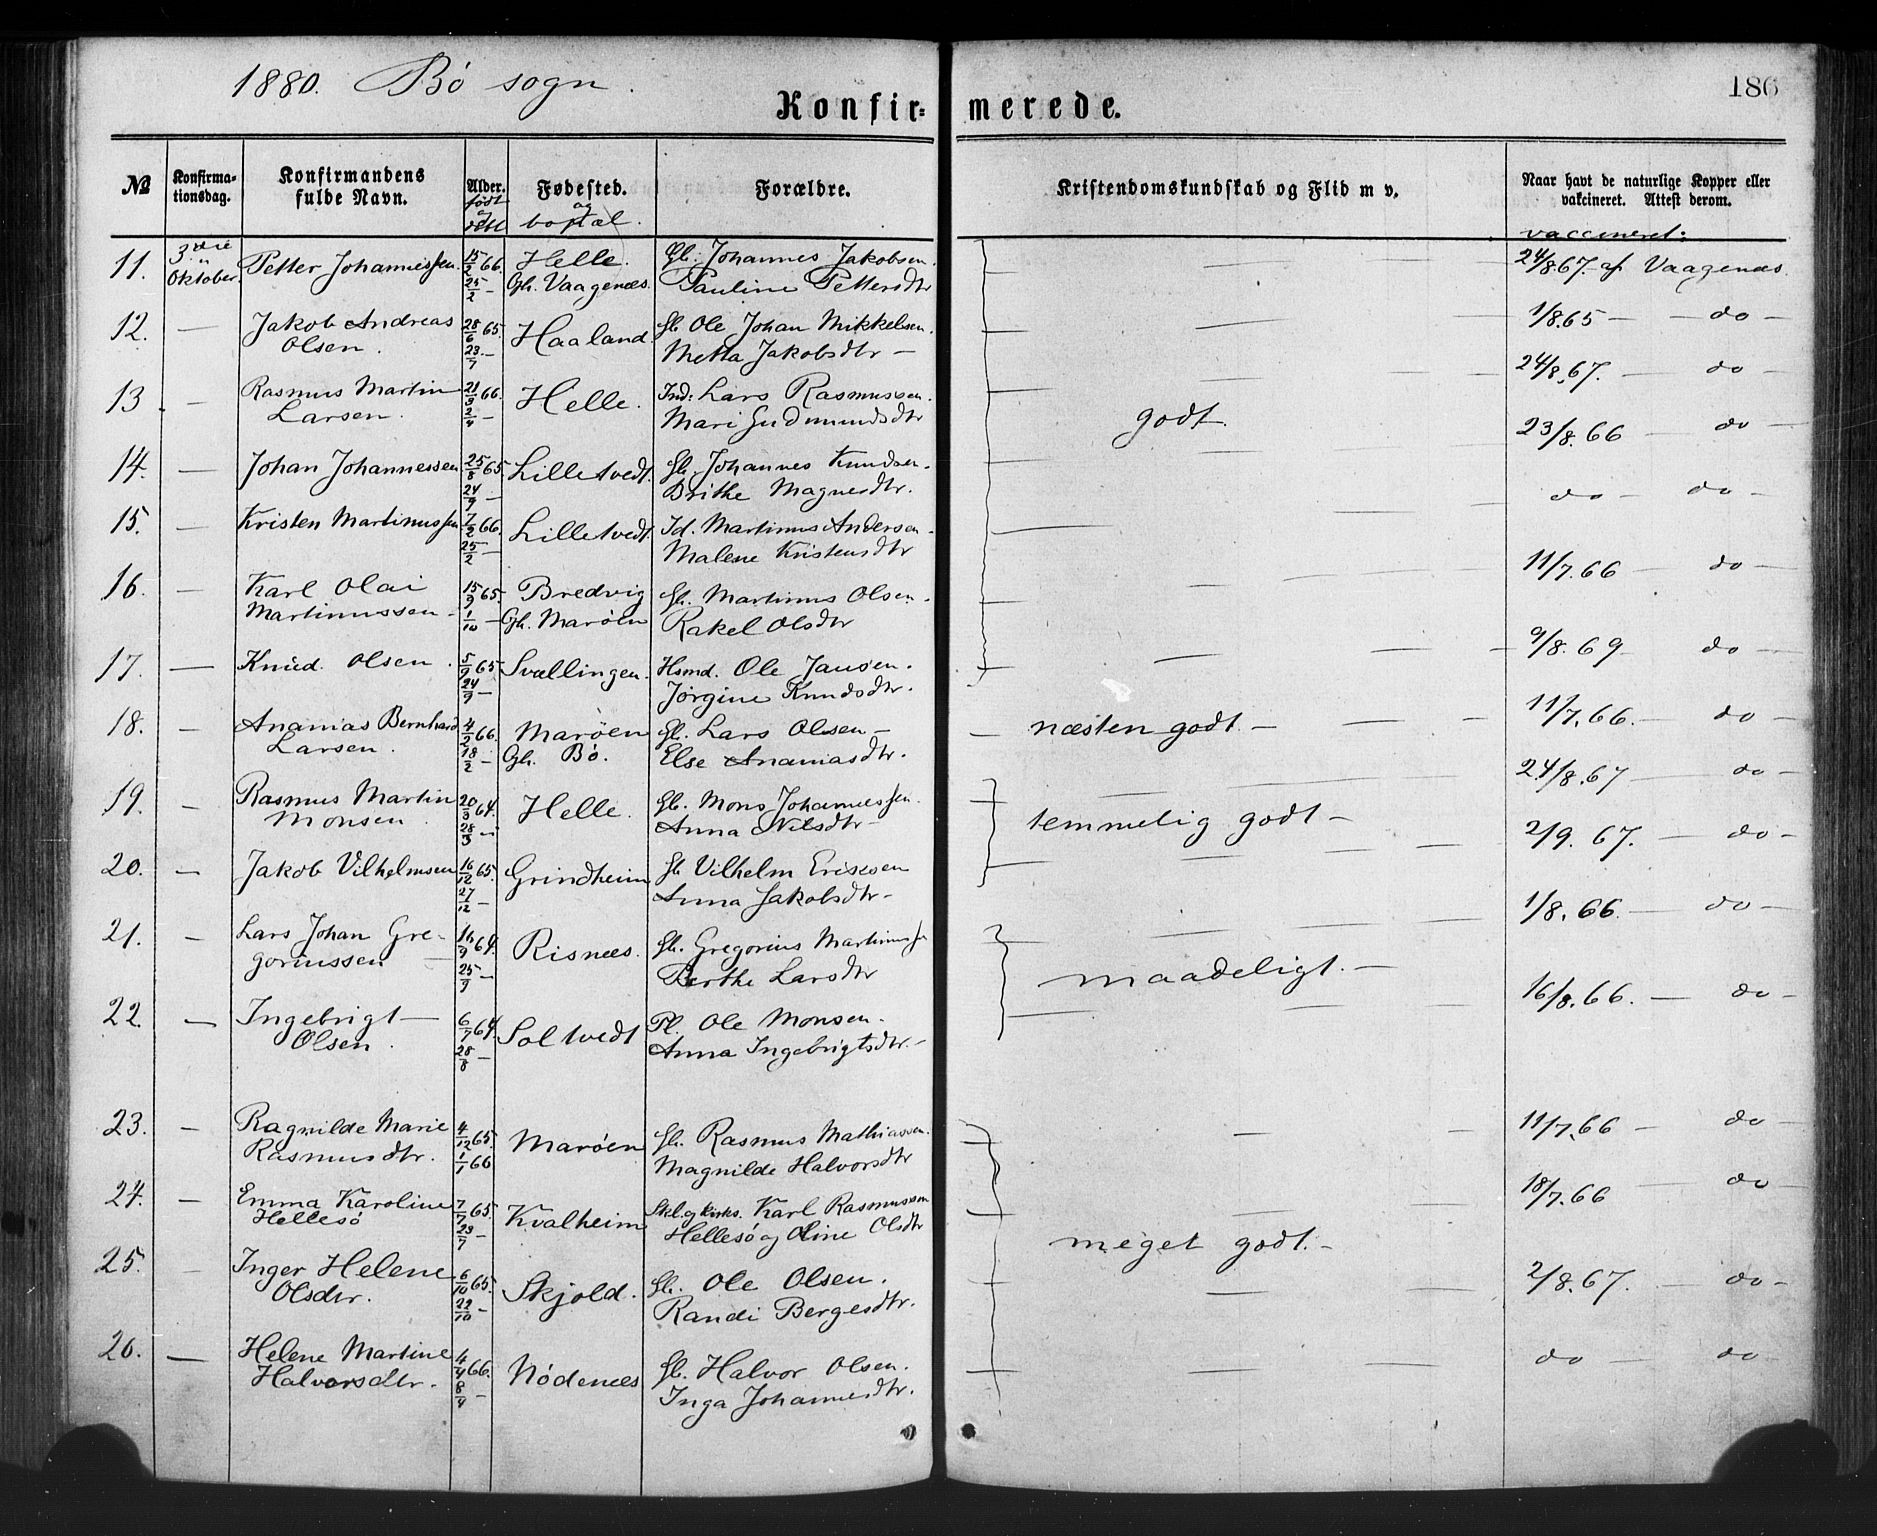 1880. Bö sogn.
186
Konfir= merede.
№ Konfirma- tionsdag. Konfirmandens fulde Navn. Alder. født og døbt Fødested. og bopæl. Forældre. Kristendomskundskab og Flid m v. Naar havt de naturlige Kopper eller vakcineret. Attest derom.
vaccineret:
11. 3die Oktober. Petter Johannessen. 15/2 66. Helle. Gb. Johannes Jakobsen. — — 24/8 67. af Vaagenæs.
25/2 — Gh. Vaagenæs. Pauline Pettersdtr
12. — Jakob Andreas 28/6 65. Haaland. Gb. Ole Johan Mikkelsen. — 1/8. 65 — — do —
Olsen. 23/7 — Metta Jakobsdtr —
13. — Rasmus Martin 21/3 66. Helle. Ind: Lars Rasmussen. — — 24/8. 67. — do —
Larsen. 2/4 — Mari Gudmundsdtr godt.
14. — Johan Johannessen 25/8 65 Lilletvedt. Gb. Johannes Knudsen. — 23/8. 66 — do —
24/9 — Brithe Magnesdtr.
15. — Kristen Martinussen 7/2 66. Lilletvedt. Id. Martinus Andersen — do — do —
25/2 — Malene Kristensdtr
16. — Karl Olai 15/9 65. Bredvig Gb. Martinus Olsen. — 11/7. 66 — do —
Martinussen — 1/10 — Gh. Maröen Rakel Olsdtr
17. — Knud Olsen. 5/9 65 Svallingen. Hsmd. Ole Jansen. — 9/8. 69 — do —
24/9 — Jörgine Knudsdtr.
18. — Ananias Bernhard 4/2 66. Maröen Gb. Lars Olsen — næsten godt — 11/7. 66. — do —
Larsen. 18/2 — Gh. Bö. Else Ananiasdtr.
19. — Rasmus Martin 20/3 64. Helle. Gb. Mons Johannessen. temmelig godt — 24/8. 67 — do —
Monsen. 28/3 — Anna Nilsdtr —
20. — Jakob Vilhelmsen 16/12 65. Grindheim Gb Vilhelm Ericsen — 2/9. 67. — do —
27/12 — Anna Jakobsdtr —
21. — Lars Johan Gre- 64. Risnæs. Gb. Gregorius Martinussen — 1/8. 66. — do —
goriussen — 25/9 — Berthe Larsdtr maadeligt. —
22. — Ingebrigt — 6/7 64. Soltvedt Pl. Ole Monsen. — 16/8. 66. — do —
Olsen. 28/8 — Anna Ingebrigtsdtr. —
23. — Ragnilde Marie 4/12 65. Maröen Gb. Rasmus Mathiassen. — 11/7. 66 — do —
Rasmusdtr. 1/1 66 Magnilde Halvorsdtr
24. — Emma Karoline 7/7 65. Kvalheim Skl. og Kirks. Karl Rasmussen — 18/7. 66 do —
Hellesö 23/7 — Hellesö og Oline Olsdtr
25. — Inger Helene 6/10 65. Skjold. Gb. Ole Olsen. meget godt. — 2/8. 67. — do —
Olsdtr. 22/10 — Randi Bergesdtr.
26. — Helene Martine 4/4 66. Nödenæs Gb. Halvor Olsen. — do — do —
Halvorsdtr. 8/4 — Inga Johannesdtr.